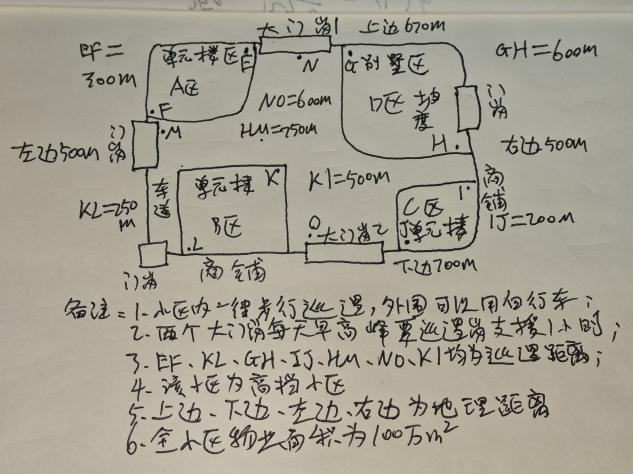 大门岗1 上边670m
EF=300m
单元楼区 E
A区
F
N
G别墅区
D区 坡度
H
GH=600m
门岗
NO=600m
HM=250m
门岗
M
左边500m
右边500m
KL=250m
车道
单元楼 K
B区
L
KI=500m
I
C区
J单元楼
商铺
IJ=200m
O
大门岗2
门岗
商铺
下边700m
备注=1.小区内一律步行巡逻,外围可以用自行车;
2.两个大门岗每天早高峰要巡逻岗支援1小时;
3.EF、KL、GH、IJ、HM、NO、KI均为巡逻距离;
4.该小区为高档小区
5.上边、下边、左边、右边为地理距离
6.全小区物业面积为100万m²